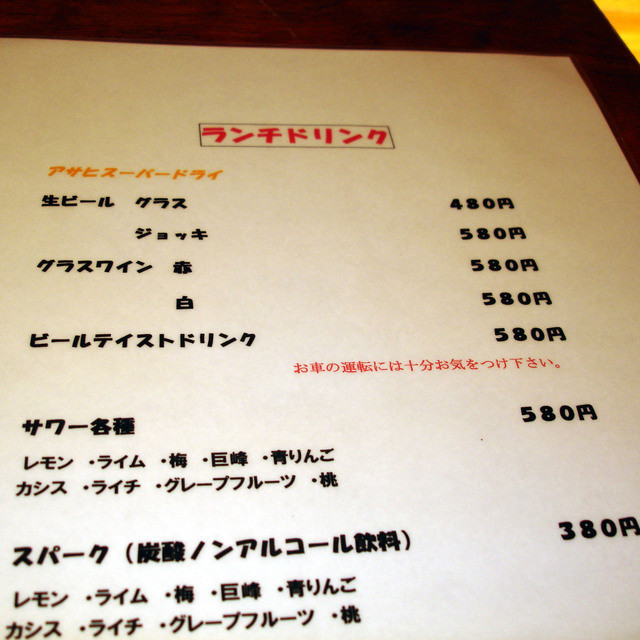 ランチドリンク
アサヒスーパードライ
生ビール グラス 480円
ジョッキ 580円
グラスワイン 赤 580円
白 580円
ビールテイストドリンク 580円
お車の運転には十分お気をつけ下さい。
サワー各種 580円
レモン ・ライム ・梅 ・巨峰 ・青りんご
カシス ・ライチ ・グレープフルーツ ・桃
スパーク（炭酸ノンアルコール飲料） 380円
レモン ・ライム ・梅 ・巨峰 ・青りんご
カシス ・ライチ ・グレープフルーツ ・桃